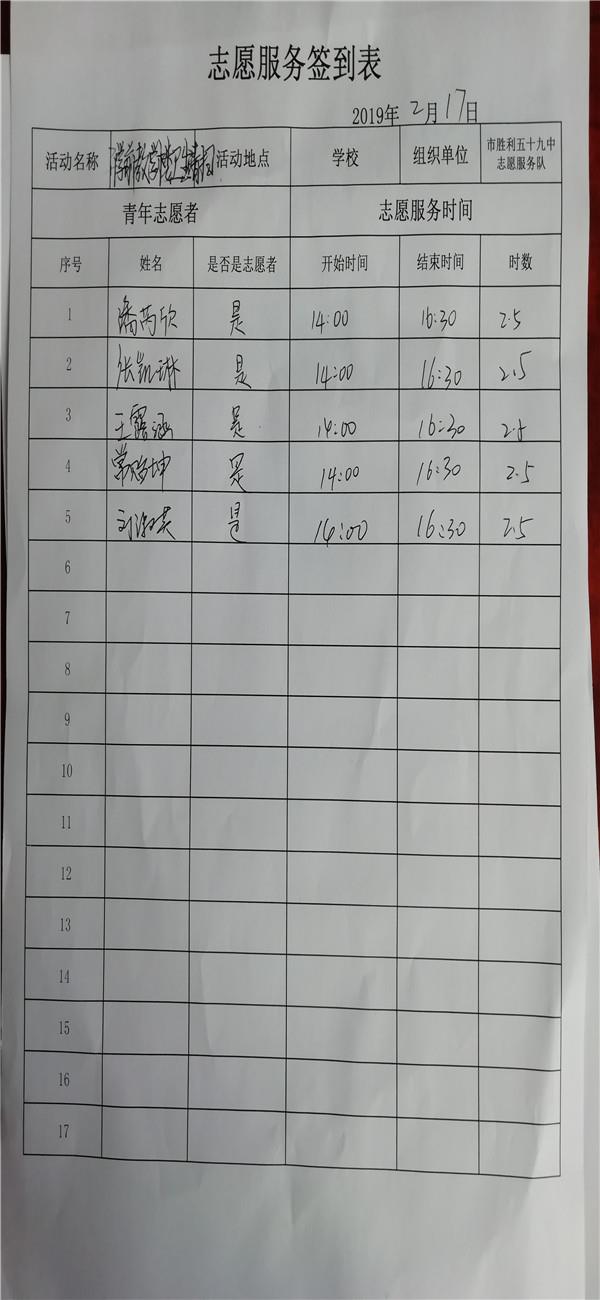 志愿服务签到表
2019年 2月 17日
活动名称 活动地点 学校 组织单位 市胜利五十九中
志愿服务队
青年志愿者 志愿服务时间
序号 姓名 是否是志愿者 开始时间 结束时间 时数
1 潘芮欣 是 14:00 16:30 2.5
2 张凯琳 是 14:00 16:30 2.5
3 王露涵 是 14:00 16:30 2.5
4 是 14:00 16:30 2.5
5 刘淑英 是 14:00 16:30 2.5
6
7
8
9
10
11
12
13
14
15
16
17